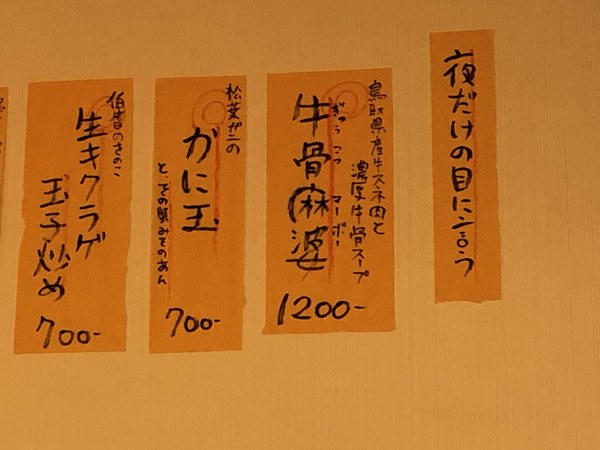 夜だけの目に言う
鳥取県産牛スネ肉と
濃厚牛骨スープ
ぎゅうこつマーボー
牛骨麻婆
1200-
松葉ガニの
かに玉
700-
伯耆のきのこ
生キクラゲ
玉子炒め
700-